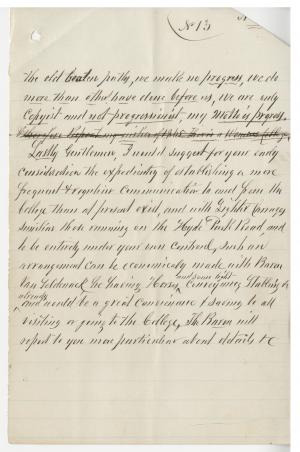 No 13
the old beaten path, we make no progress, we do
more than others have done before us, we are only
Copyist and not progressionist, my motto is progress.
Lastly Gentlemen, I would suggest for your early
consideration the expediency of establishing a more
frequent & regular Communication to and from the
College than at present exist, and with Lighter Carriages
similar to those running on the Hyde Park Road, and
to be entirely under your own Control, Such an
arrangement can be economically made with Baron
Van he having Horses and some light Conveyances Stabling &c
already
and would be a great Convenience & Saving to all
visiting or going to the College, The Baron will
report to you more particular about details &c